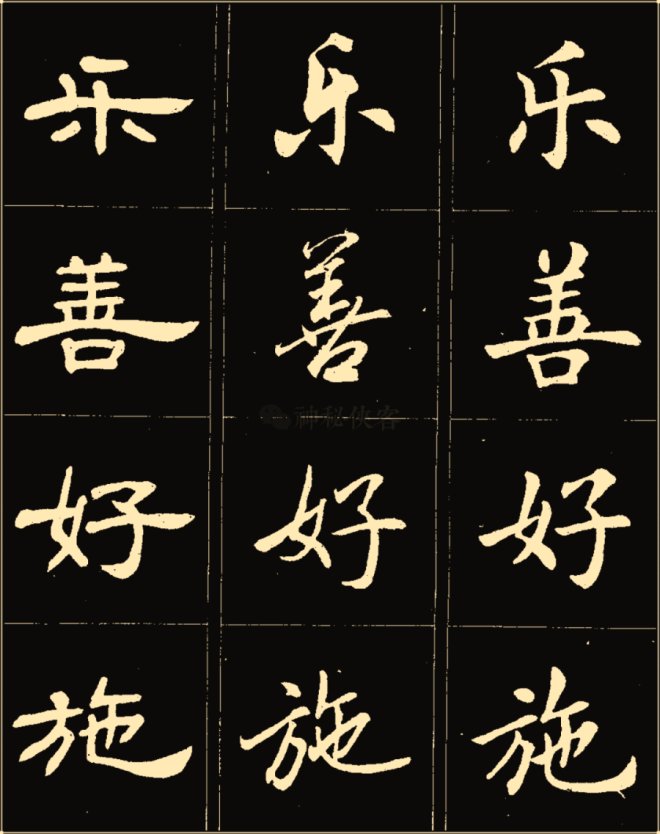 乐 乐 乐
善 善 善
神秘侠客
好 好 好
施 施 施